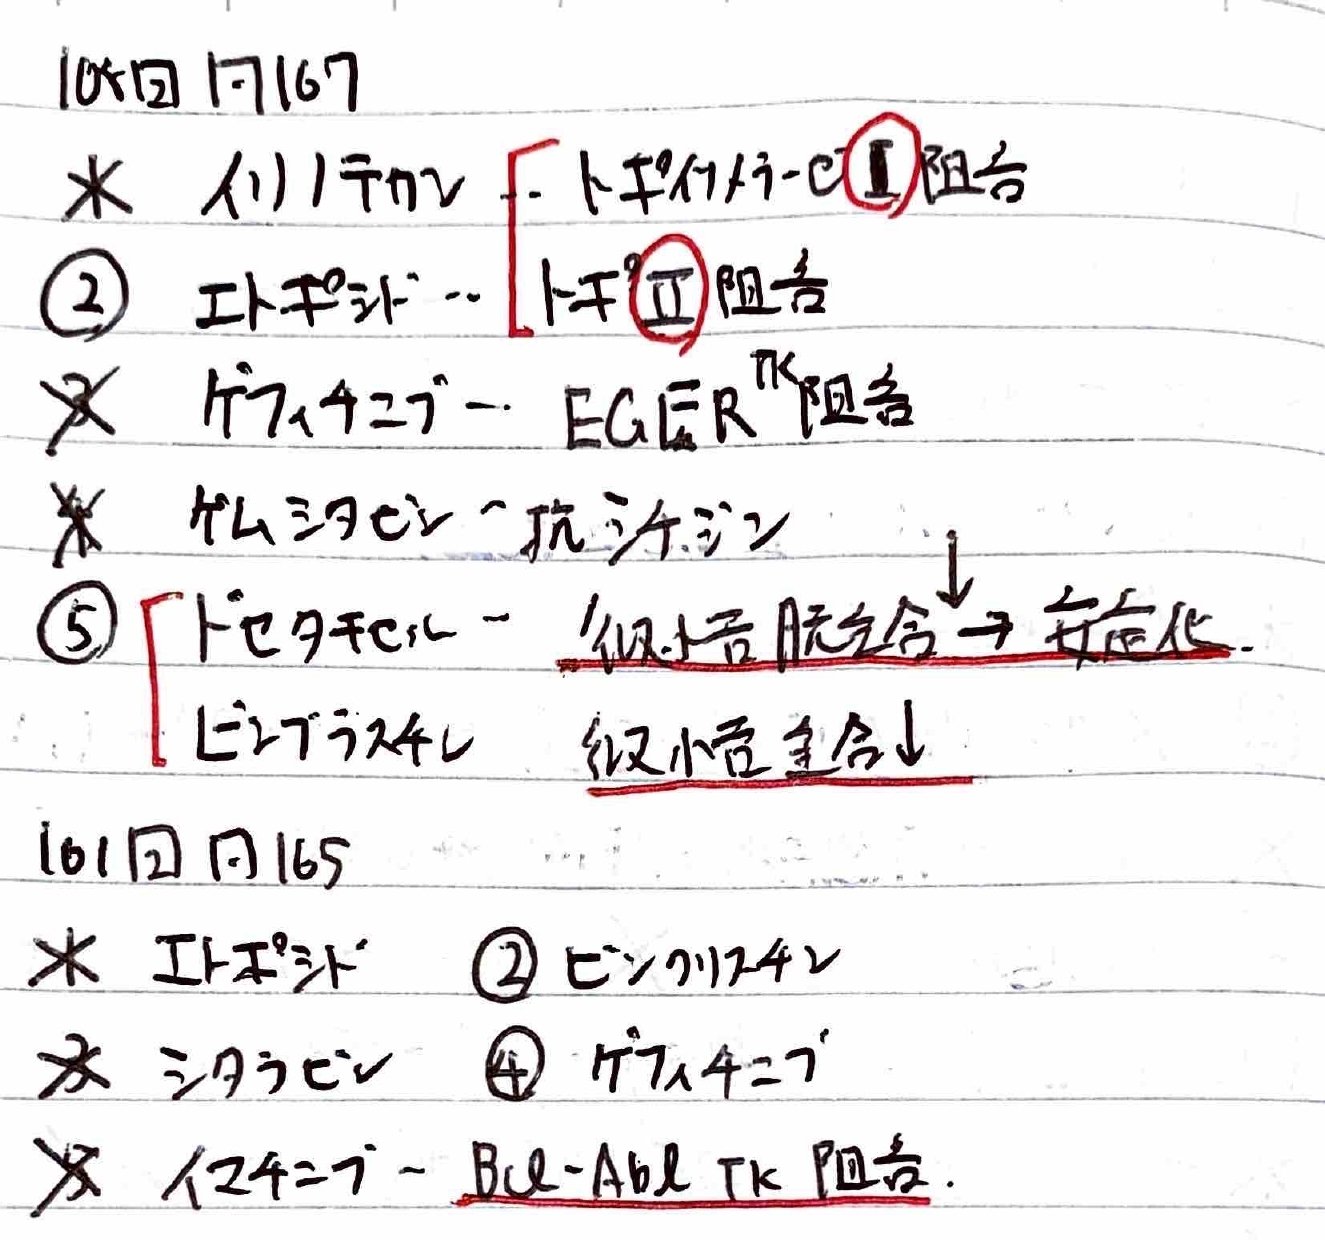 108回 問167
1 イリノテカン … トポイソメラーゼⅠ阻害
② エトポシド … トポⅡ阻害
3 ゲフィチニブ … EGFR TK阻害
4 ゲムシタビン - 抗
⑤ ドセタキセル - 微小管脱重合↓→安定化.
ビンブラスチン 微小管重合↓
101回 問165
1 エトポシド ② ビンクリスチン
3 シタラビン ④ ゲフィチニブ
5 イマチニブ - Bcl-Abl TK 阻害.